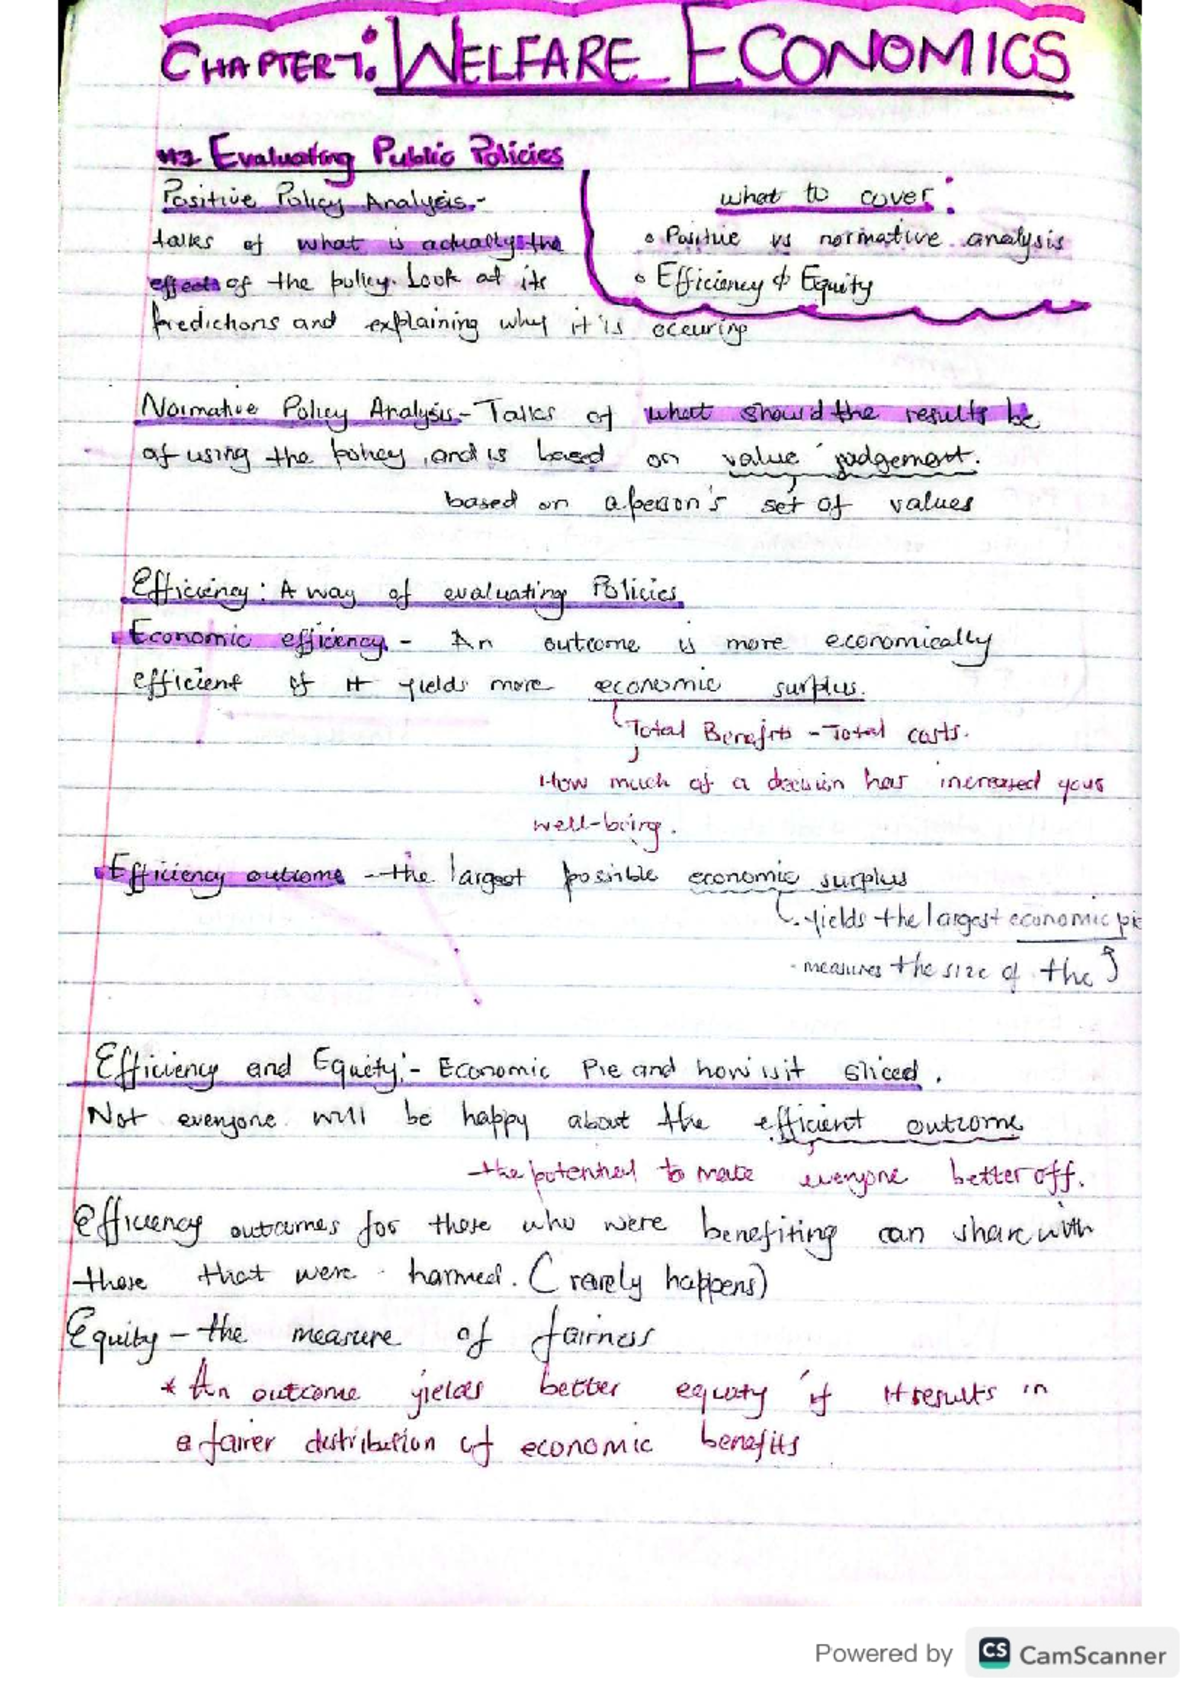 CHAPTER 7: WELFARE ECONOMICS
Evaluating Public Policies
Positive Policy Analysis.-
talks of what is actually the
effects of the policy. Look at its
predictions and explaining why it is occuring
what to cover:
• Positive vs normative analysis
• Efficiency & Equity
Normative Policy Analysis - Talks of what should the results be
of using the policy, and is based on value judgement.
based on a person's set of values
Efficiency: A way of evaluating Policies
Economic efficiency. - An outcome is more economically
efficient if it yields more economic surplus.
Total Benefits - Total costs.
How much of a decision has increased your
well-being.
Efficiency outcome - the largest possible economic surplus
yields the largest economic pie
- measures the size of the
Efficiency and Equity:- Economic Pie and how is it sliced.
Not everyone will be happy about the efficient outcome
- the potential to make everyone better off.
Efficiency outcomes for those who were benefiting can share with
those that were harmed. (rarely happens)
Equity - the measure of fairness
* An outcome yields better equity if it results in
a fairer distribution of economic benefits
Powered by CS CamScanner